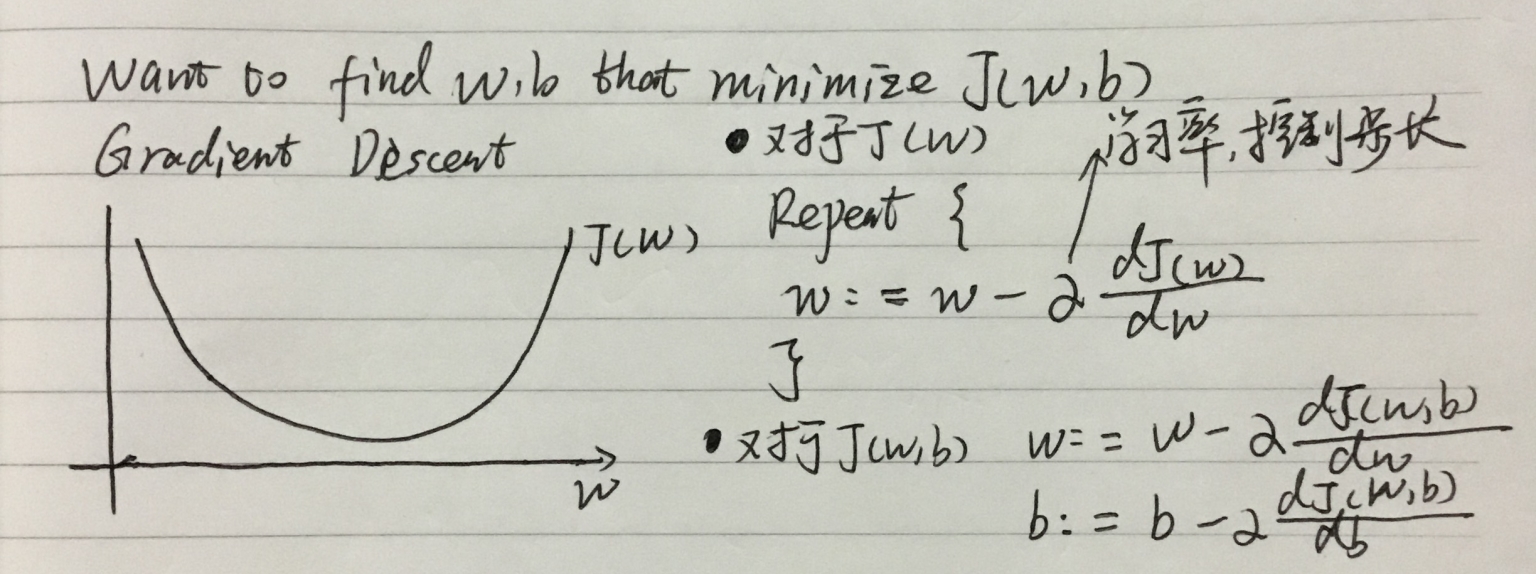 Want to find w,b that minimize J(w,b)
Gradient Descent
J(w)
w
• 对于J(w)
学习率,控制步长
Repeat {
w := w - α dJ(w)/dw
}
• 对于J(w,b)
w := w - α dJ(w,b)/dw
b := b - α dJ(w,b)/db